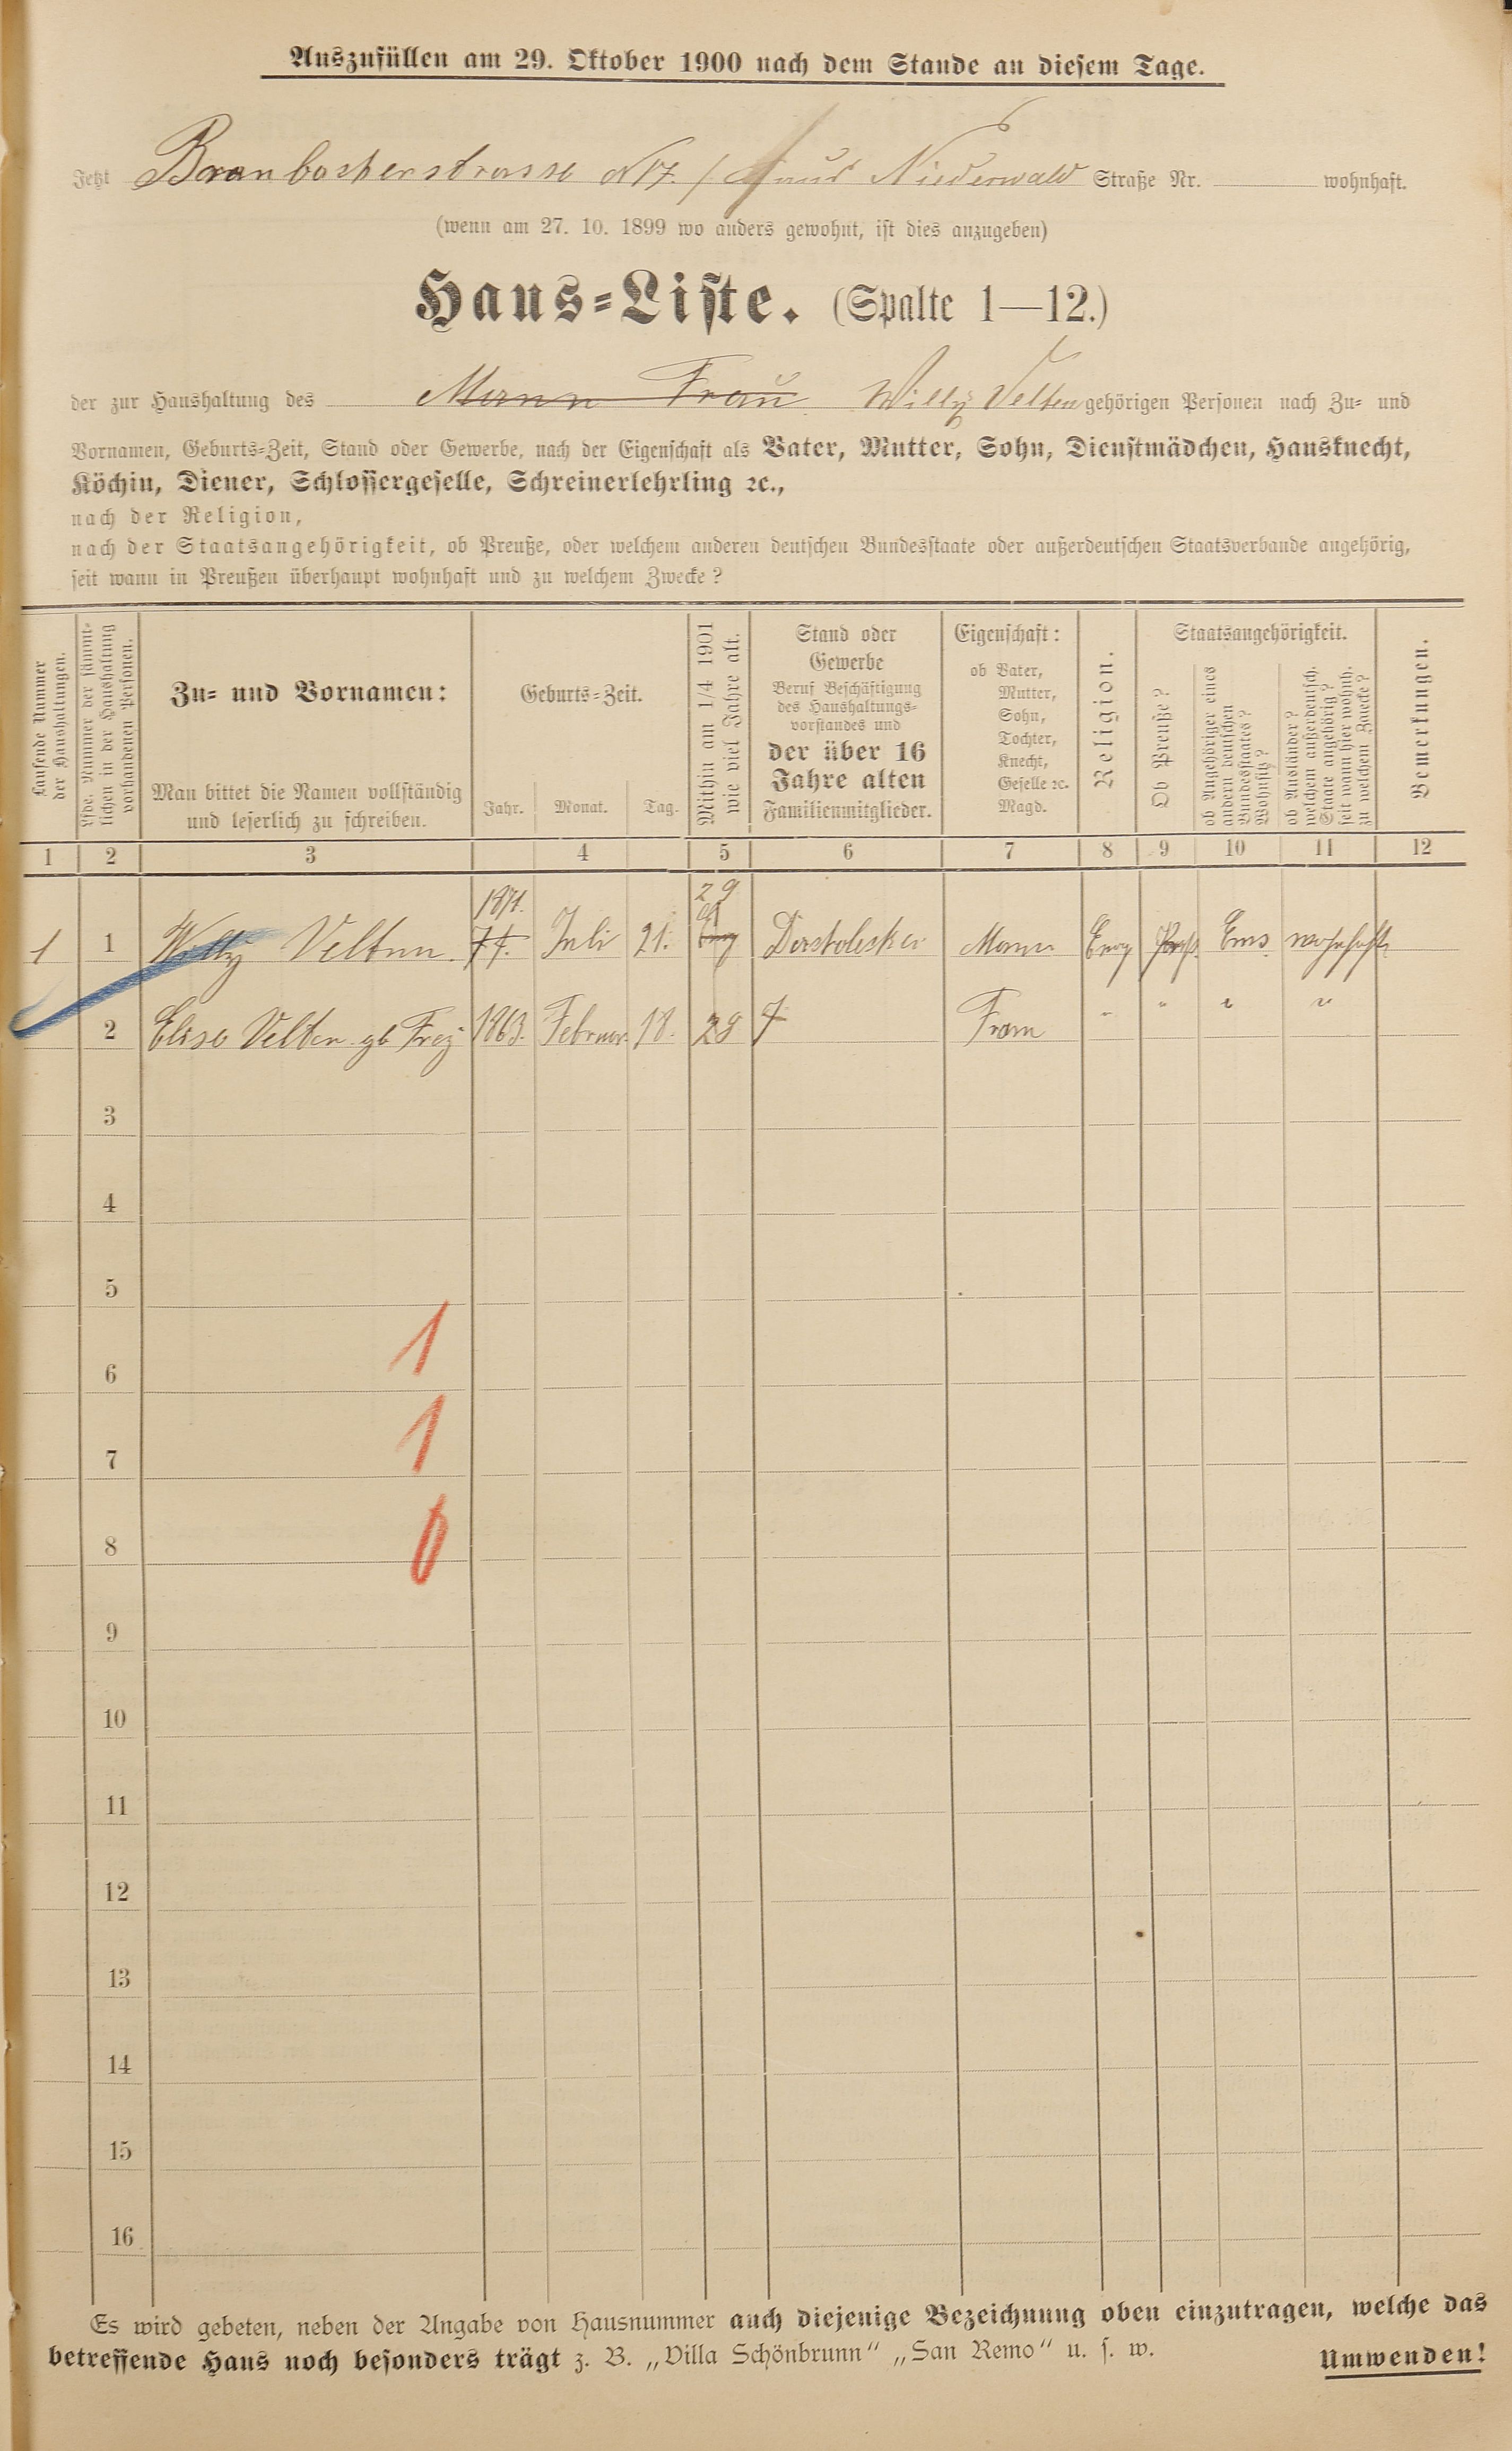 Auszufüllen am 29. Oktober 1900 nach dem Stande an diesem Tage.
Jetzt Braubacherstrasse N 17. / Haus Niederwald Straße Nr. wohnhaft.
(wenn am 27. 10. 1899 wo anders gewohnt, ist dies anzugeben)
Haus-Liste. (Spalte 1—12.)
der zur Haushaltung des Mann Frau Willy Velten gehörigen Personen nach Zu- und
Vornamen, Geburts-Zeit, Stand oder Gewerbe, nach der Eigenschaft als Vater, Mutter, Sohn, Dienstmädchen, Hausknecht,
Köchin, Diener, Schlossergeselle, Schreinerlehrling ꝛc.,
nach der Religion,
nach der Staatsangehörigkeit, ob Preuße, oder welchem anderen deutschen Bundesstaate oder außerdeutschen Staatsverbande angehörig,
seit wann in Preußen überhaupt wohnhaft und zu welchem Zwecke?
Laufende Nummer
der Haushaltungen.
Lfde. Nummer der sämmt-
lichen in der Haushaltung
vorhandenen Personen.
Zu- und Vornamen:
Man bittet die Namen vollständig
und leserlich zu schreiben.
Geburts-Zeit.
Jahr. Monat. Tag.
Mithin am 1/4 1901
wie viel Jahre alt.
Stand oder
Gewerbe
Beruf Beschäftigung
des Haushaltungs-
vorstandes und
der über 16
Jahre alten
Familienmitglieder.
Eigenschaft:
ob Vater,
Mutter,
Sohn,
Tochter,
Knecht,
Geselle ꝛc.
Magd.
Religion.
Staatsangehörigkeit.
Ob Preuße?
ob Angehöriger eines
andern deutschen
Bundesstaates?
Wohnsitz?
ob Ausländer?
welchem außerdeutsch.
Staate angehörig?
seit wann hier wohnh.
zu welchem Zwecke?
Bemerkungen.
1 2 3 4 5 6 7 8 9 10 11 12
1871. 29
1 1 Willy Velten. 71. Juli 21. Mann Evg Ems wohnhaft
2 Elise Velten gb Frey 1863. Februar 18. 28 Frau " " " "
3
4
5
1
6
1
7
0
8
9
10
11
12
13
14
15
16
Es wird gebeten, neben der Angabe von Hausnummer auch diejenige Bezeichnung oben einzutragen, welche das
betreffende Haus noch besonders trägt z. B. „Villa Schönbrunn“ „San Remo“ u. s. w.
Umwenden!